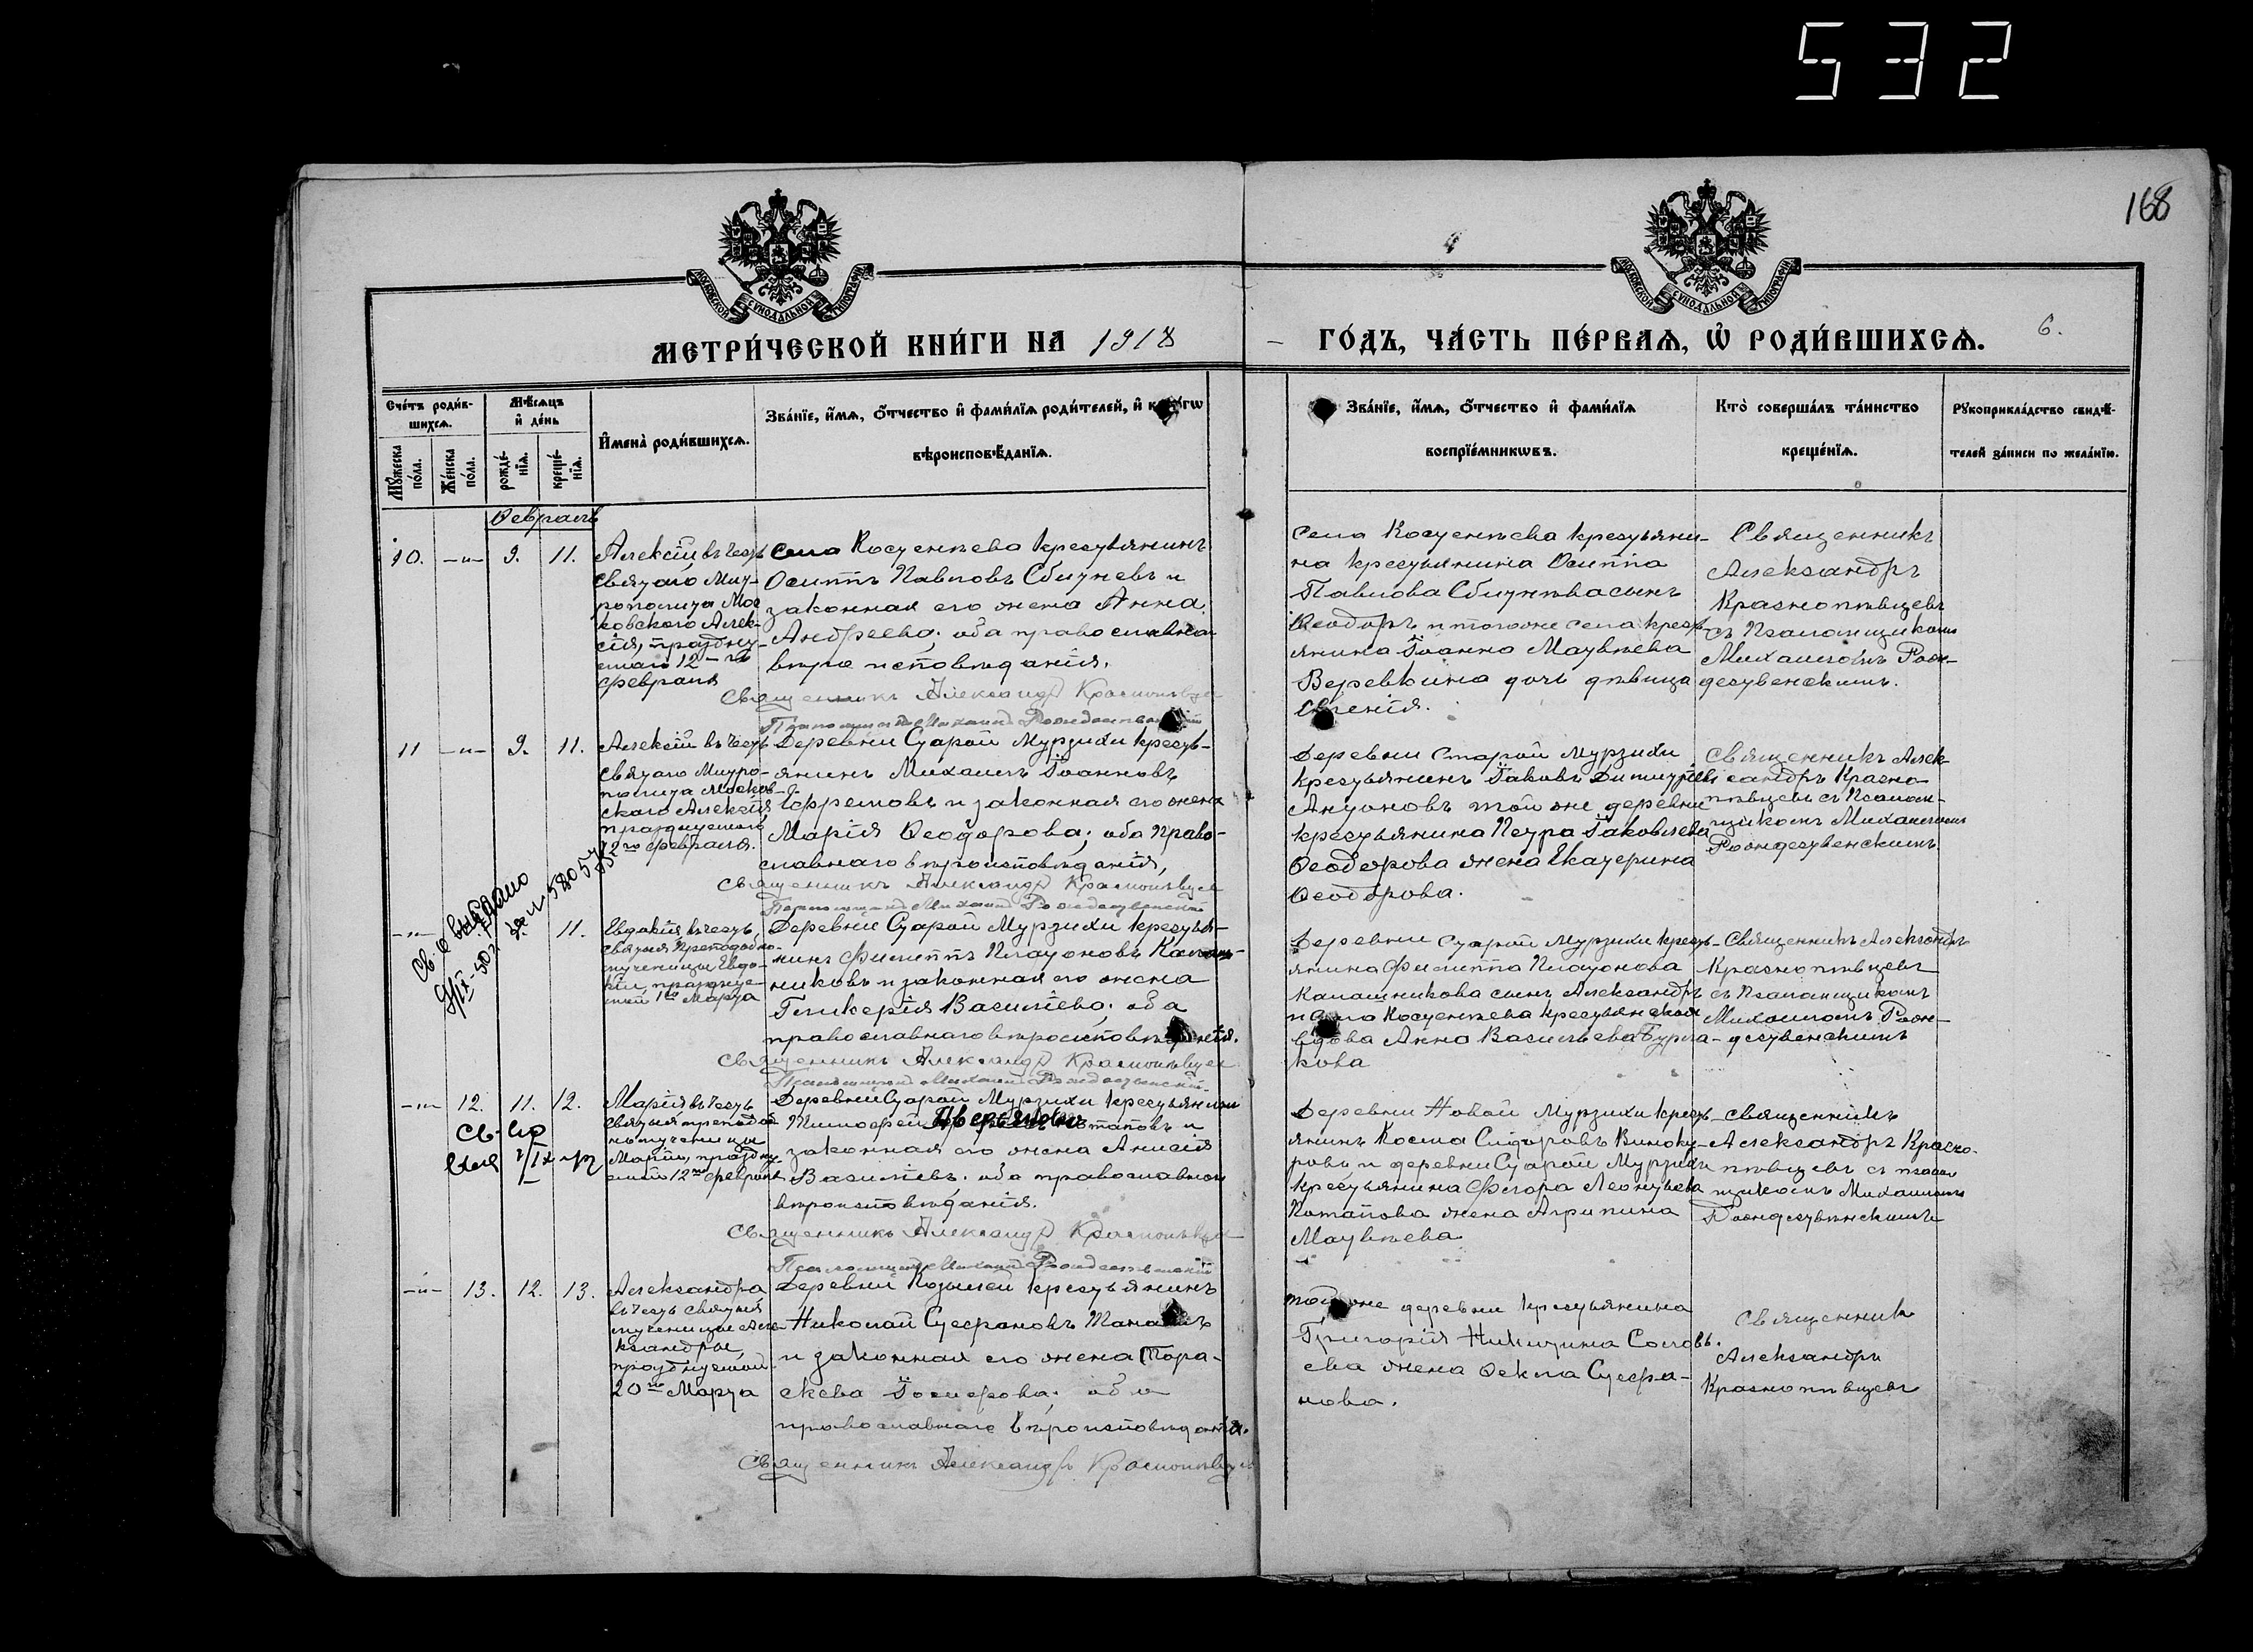 532
168
МЕТРИ́ЧЕСКОЙ КНИ́ГИ НА 1918
ГО́ДЪ, ЧА́СТЬ ПЕ́РВАѦ, Ѽ РОДИ́ВШИХСѦ.
6.
МОСКОВСКОЙ СУНОДАЛЬНОЙ ТИПОГРАФІИ
МОСКОВСКОЙ СУНОДАЛЬНОЙ ТИПОГРАФІИ
Сче́тъ роди́в-
шихсѧ.
Мꙋ́жеска по́ла.
Же́нска по́ла.
Мѣ́сѧцъ и де́нь
рожде́-
нїѧ.
креще́-
нїѧ.
Имена̀ роди́вшихсѧ.
Зва́нїе, и́мѧ, ѻ҆́тчество и҆ фами́лїѧ роди́телей, и҆
вѣроисповѣ́данїѧ.
Зва́нїе, и́мѧ, ѻ҆́тчество и҆ фами́лїѧ
воспрїе́мникѡвъ.
Кто̀ соверша́лъ та́инство
креще́нїѧ.
Рꙋкоприкла́дство свидѣ́-
телей за́писи по жела́нїю.
Ѳевраль
10. -"- 9. 11.
Алексій въ честь
Святаго Мит-
рополита Мос
ковскаго Алек-
сія, праздну-
емаго 12-го
февраля
Села Костенѣева крестьянинъ
Осиппъ Павловъ Сбитневъ и
законная его жена Анна
Андреева; оба православна-
го исповѣданія.
Священникъ Александръ Краснопѣвцев
Псаломщикъ Михаилъ Рождественскій
Села Костенѣева крестьяни-
на крестьянина Осиппа
Павлова Сбитнѣва сынъ
Ѳеодоръ и тогоже села крест-
янина Іоанна Матвѣева
Веревкина дочь дѣвица
Евгенія.
Священникъ
Александръ
Краснопѣвцевъ
съ Псаломщикомъ
Михаиломъ Рож-
дественскимъ.
11 -"- 9. 11.
Алексій въ честь
Святаго Митро-
полита Москов-
скаго Алексія,
празднуемаго
12го февраля.
Деревни Старой Мурзихи кресть-
янинъ Михаилъ Іоанновъ
Ефремовъ и законная его жена
Марія Ѳеодорова; оба право-
славнаго вѣроисповѣданія,
Священникъ Александръ Краснопѣвцев
Псаломщикъ Михаилъ Рождественскій
Деревни Старой Мурзихи
крестьянинъ Іаковъ Димитріев
Антоновъ той же деревни
крестьянина Петра Іаковлева
Ѳеодорова жена Екатерина
Ѳеодорова.
Священникъ Алек-
сандръ Красно-
пѣвцевъ съ Псалом-
щикомъ Михаиломъ
Рождественскимъ
-"- 11.
Св во выдано
9/IX-50г за № 580572
Евдокія въ честь
Святыя Преподобно-
мученицы Евдо-
кіи, праздну-
емой 1го Марта
Деревни Старой Мурзихи крестья-
нинъ Филиппъ Платоновъ Калаш-
никовъ и законная его жена
Гликерія Василіева; оба
православнаго вѣроисповѣданія.
Священникъ Александръ Краснопѣвцев
Псаломщикъ Михаилъ Рождественскій
Деревни Старой Мурзихи крест-
янина Филиппа Платонова
Калашникова сынъ Александръ
и села Костенѣева крестьянская
вдова Анна Васильева Бурла-
кова
Священникъ Александръ
Краснопѣвцевъ
съ Псаломщикомъ
Михаиломъ Рож-
дественскимъ
-"- 12. 11. 12.
Св-во
Марія въ честь
Святыя преподоб
номученицы
Маріи, праздну-
емой 12го февраля
Деревни Старой Мурзихи крестьянинъ
Тимофей Аверьянов Потаповъ и
законная его жена Анисія
Василіева; оба православнаго
вѣроисповѣданія.
Священникъ Александръ Краснопѣвцев
Псаломщикъ Михаилъ Рождественскій
Деревни Новой Мурзихи крест-
янинъ Косма Сидоровъ Виноку-
ровъ и деревни Старой Мурзихи
крестьянина Фегора Леонтьева
Потапова жена Агрипина
Матвѣева
Священникъ
Александръ Красно-
пѣвцевъ съ псалом
щикомъ Михаиломъ
Рождественскимъ
-"- 13. 12. 13.
Александра
въ честь святыя
мученицы Але-
ксандры,
празднуемой
20го Марта
Деревни Козылей крестьянинъ
Николай Стефановъ
и законная его жена Пара-
скева Іосифова; оба
православнаго вѣроисповѣданія.
Священникъ Александръ Краснопѣвцев
Той же деревни крестьянина
Григорія Никитина Соловь-
ева жена Ѳекла Стефа-
нова.
Священник
Александръ
Краснопѣвцевъ